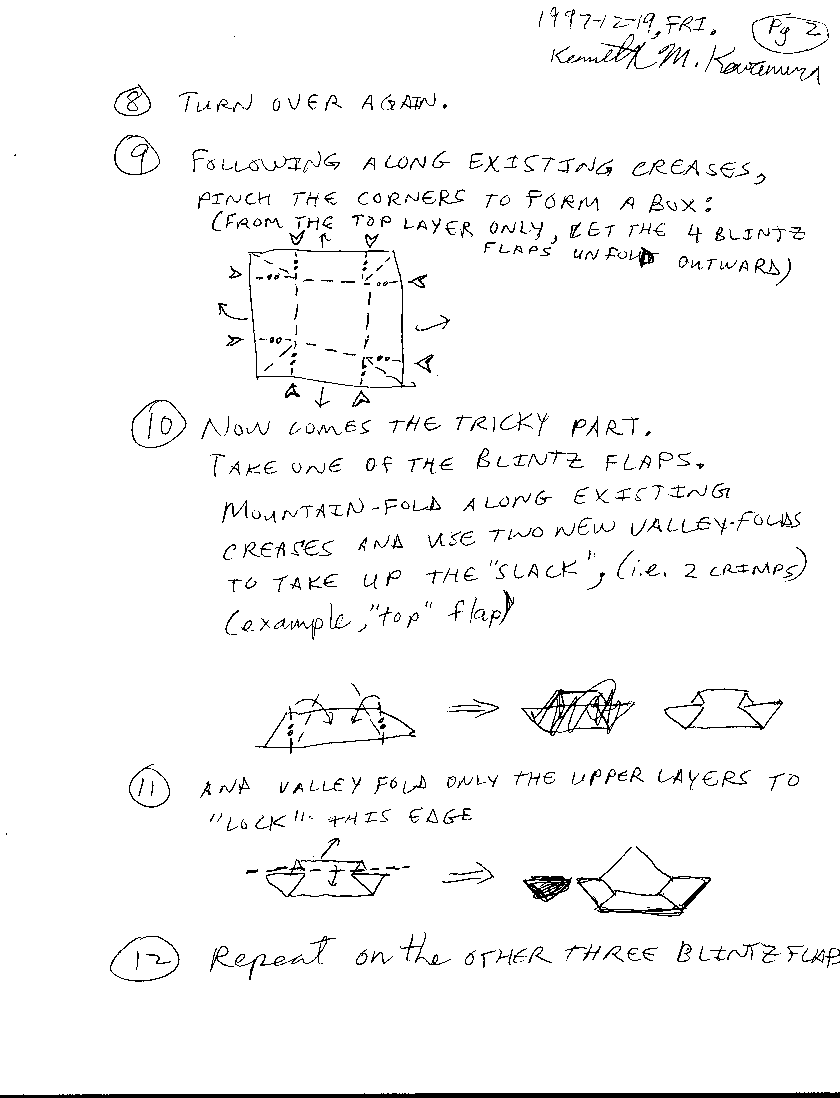 1997-12-19, FRI. Pg 2
Kenneth M. Kawamura
8 TURN OVER AGAIN.
9 FOLLOWING ALONG EXISTING CREASES,
PINCH THE CORNERS TO FORM A BOX:
(FROM THE TOP LAYER ONLY, LET THE 4 BLINTZ
FLAPS UNFOLD OUTWARD)
10 NOW COMES THE TRICKY PART.
TAKE ONE OF THE BLINTZ FLAPS.
MOUNTAIN-FOLD ALONG EXISTING
CREASES AND USE TWO NEW VALLEY-FOLDS
TO TAKE UP THE "SLACK", (i.e. 2 CRIMPS)
(example, "top" flap)
11 AND VALLEY FOLD ONLY THE UPPER LAYERS TO
"LOCK" THIS EDGE
12 Repeat on the OTHER THREE BLINTZ FLAP